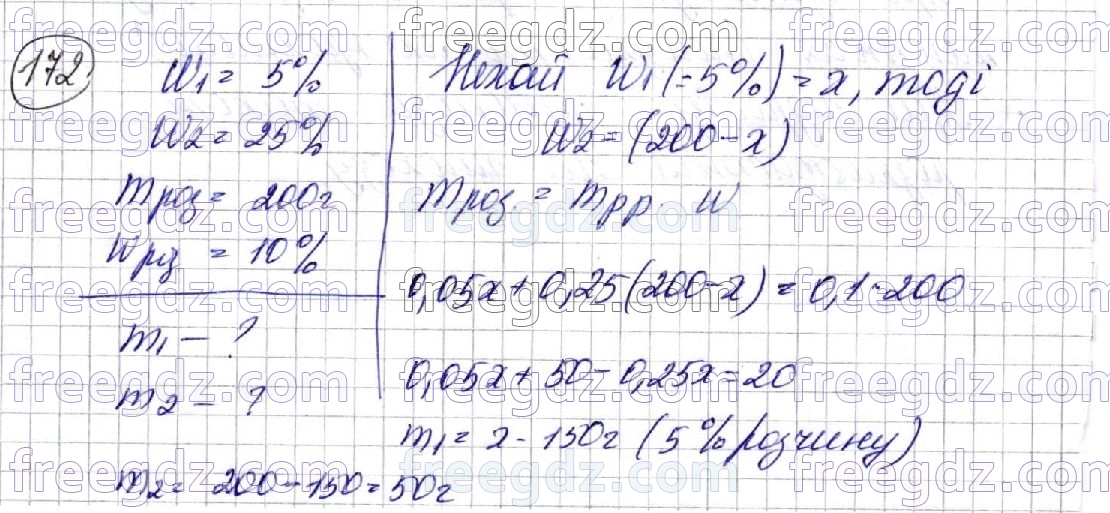 172
W1 = 5%
W2 = 25%
mроз = 200г
Wрц = 10%
m1 - ?
m2 - ?
m2 = 200 - 150 = 50г
Нехай W1 (-5%) = x, тоді
W2 = (200 - x)
mроз. = mрр. W
0,05x + 0,25(200 - x) = 0,1·200
0,05x + 50 - 0,25x = 20
m1 = x - 150г (5% розчину)
freegdz.com